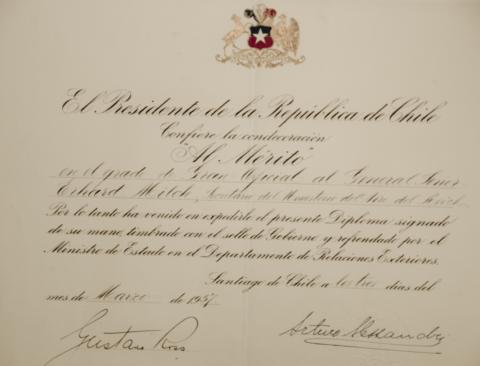 El Presidente de la República de Chile
Confiere la condecoración
"Al Mérito"
en el grado de Gran Oficial al General Señor
Erhard Milch, Secretario del Ministerio del Aire del Reich.
Por lo tanto ha venido en expedirle el presente Diploma signado
de su mano, timbrado con el sello de Gobierno y refrendado por el
Ministro de Estado en el Departamento de Relaciones Exteriores.
Santiago de Chile a los tres días del
mes de Marzo de 1937
Gustavo Ross Arturo Alessandri